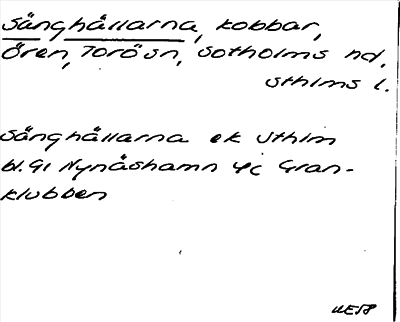 Sånghällarna, kobbar,
Ören, Torö sn, Sotholms hd,
Sthlms l.
Sånghällarna ek Sthlm
bl. 91 Nynäshamn 4c Gran-
klubben